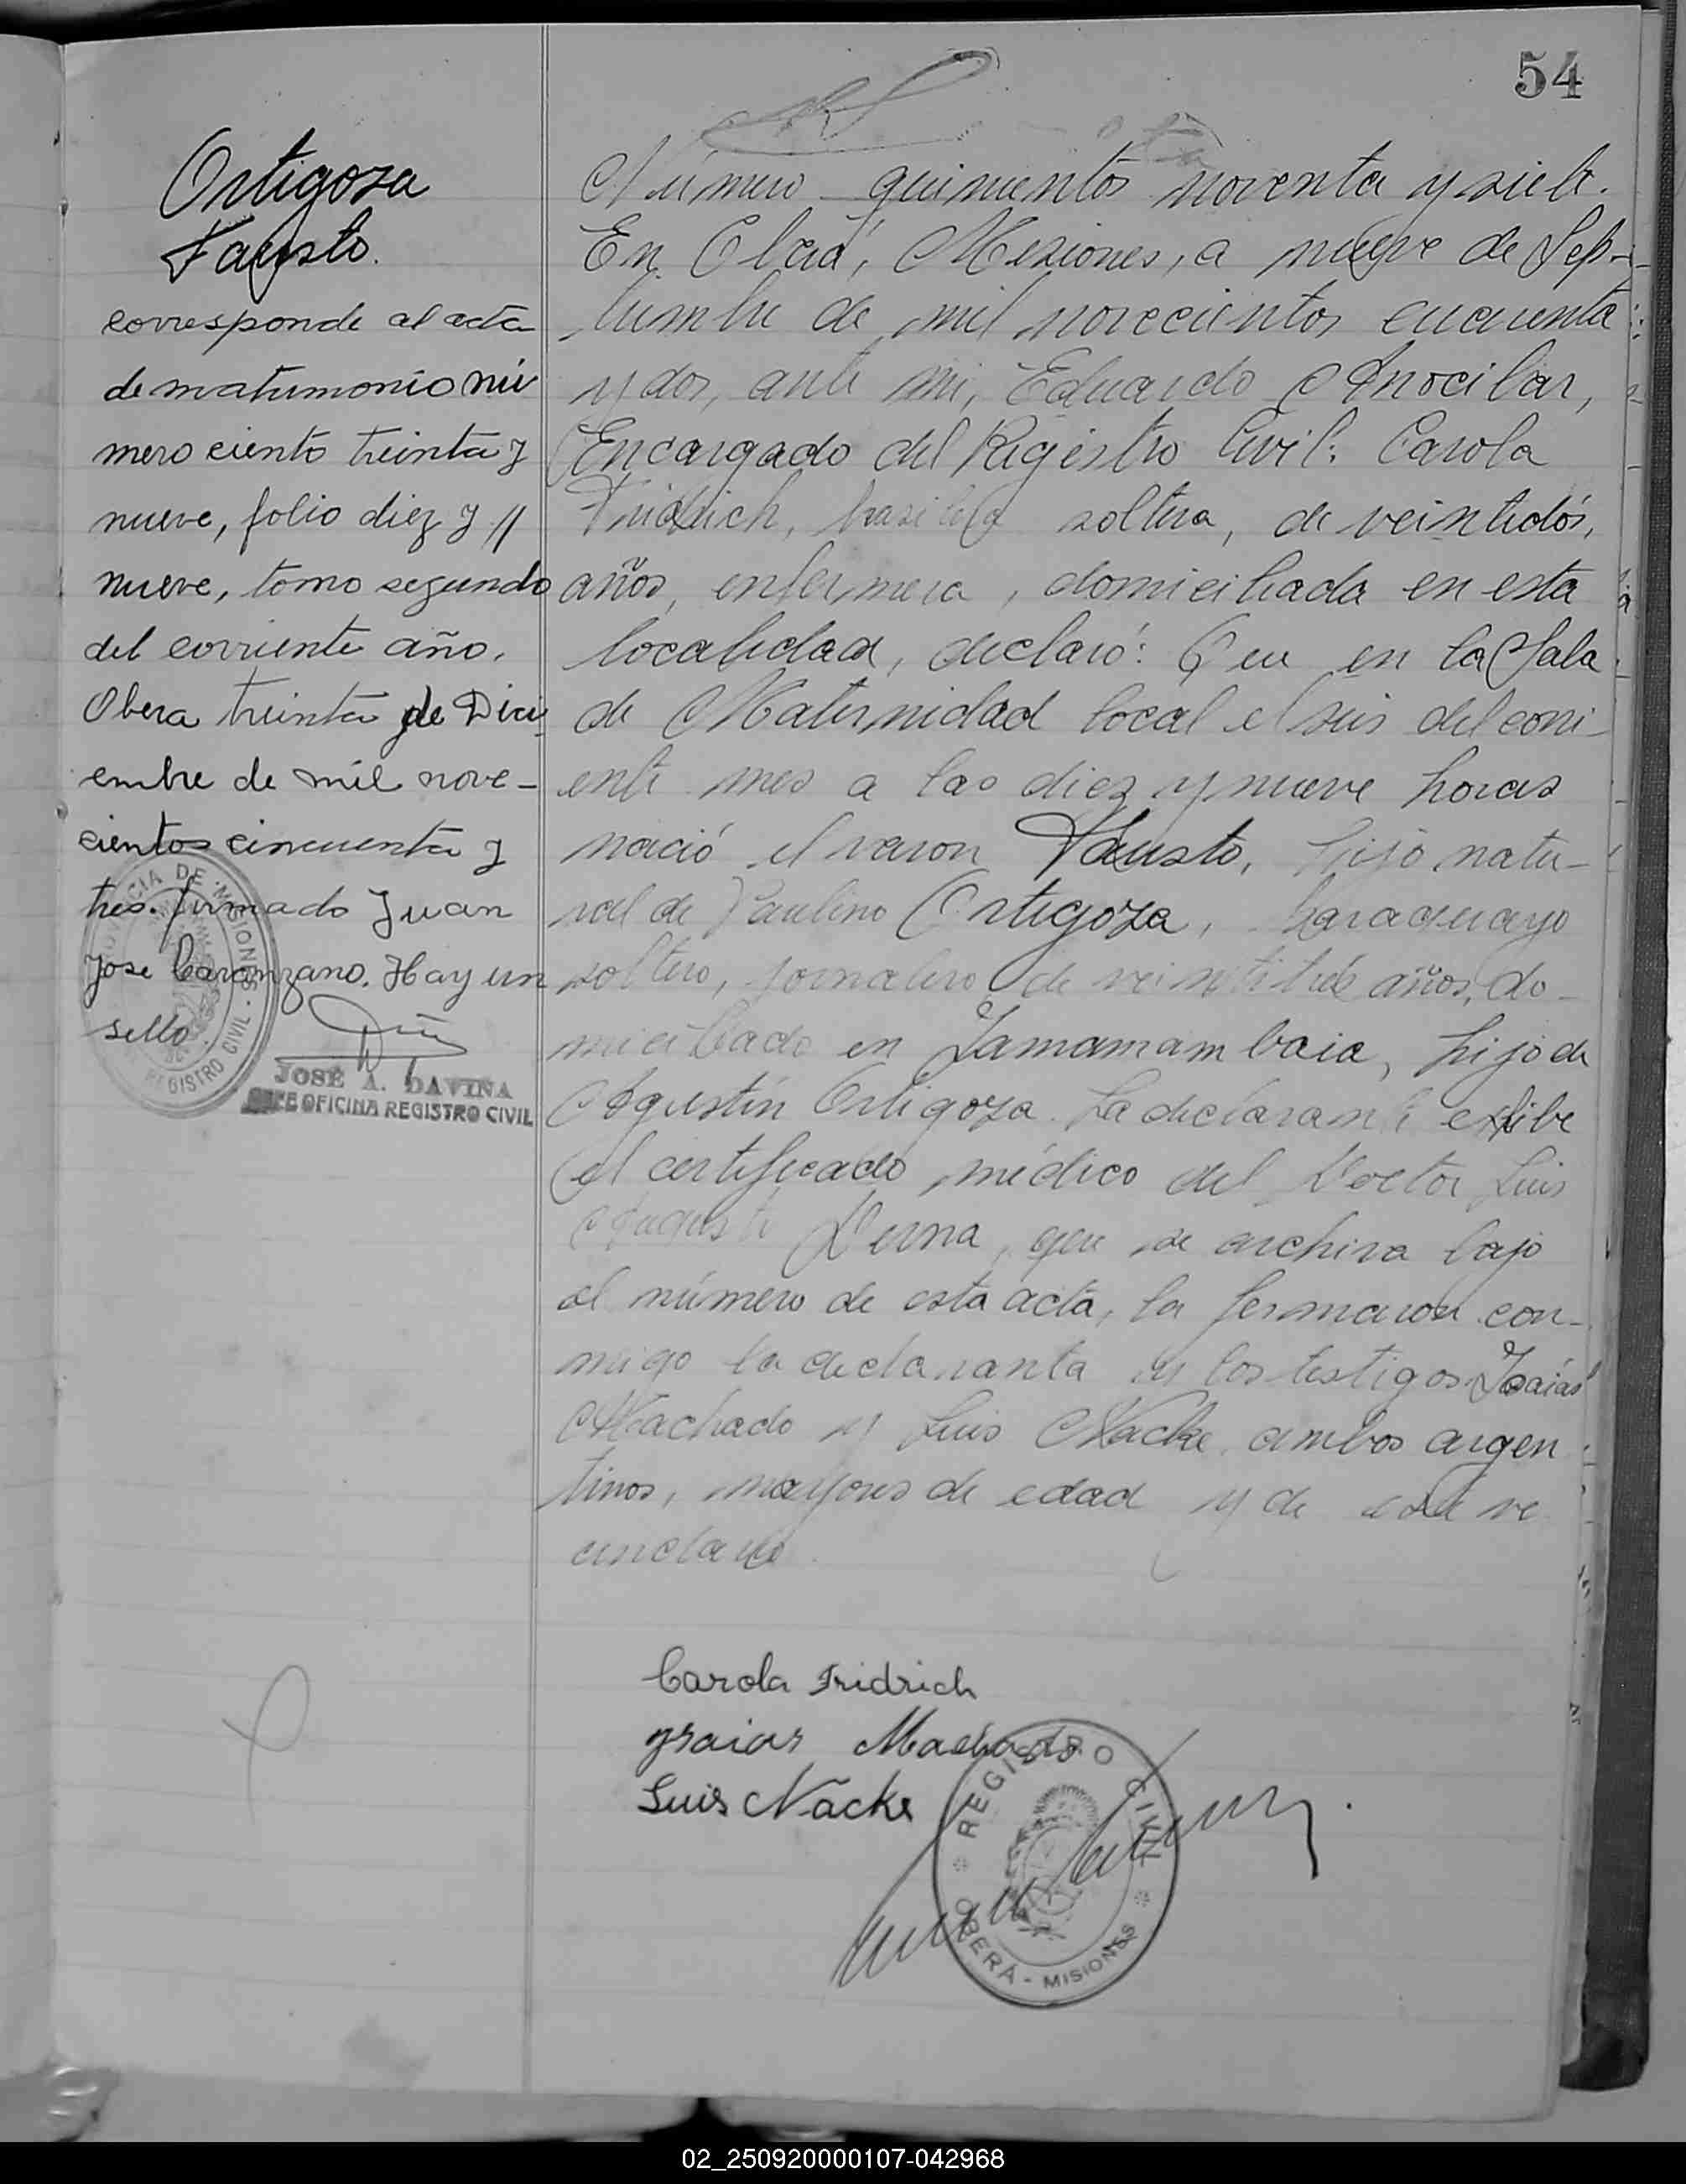 54
Ortigoza
Fausto.
corresponde al acta
de matrimonio nú
mero ciento treinta y
nueve, folio diez y //
nueve, tomo segundo
del corriente año.
Obera treinta de Dici
embre de mil nove-
cientos cincuenta y
tres. firmado Juan
Jose Caranzano. Hay un
sello.
PROVINCIA DE MISIONES
REGISTRO CIVIL
JOSÉ A. DAVIÑA
JEFE OFICINA REGISTRO CIVIL
Número quinientos noventa y siete.
En Oberá, Misiones, a nueve de Sep-
tiembre de mil novecientos cincuenta
y dos, ante mi, Eduardo
Encargado del Registro Civil: Carola
Fridrich, brasileña soltera, de veintidós,
años, enfermera, domiciliada en esta
localidad, declaró: Que en la Sala
de Maternidad local el seis del corri-
ente mes a las diez y nueve horas
nació el varon Fausto, hijo natu-
ral de Paulino Ortigoza, paraguayo
soltero, jornalero de veintitrés años, do-
miciliado en Samamambaia, hijo de
Agustín Ortigoza. La declarante exhibe
el certificado médico del Doctor Luis
Augusto Derna, que se archiva bajo
el número de esta acta, la firmaron con-
migo la declaranta y los testigos Isaías
Machado y Luis Nacke ambos argen
tinos, mayores de edad y de este ve
cindario.
Carola Fridrich
Ysaias Machado
Luis Nacke
REGISTRO CIVIL
OBERÁ - MISIONES
02_250920000107-042968